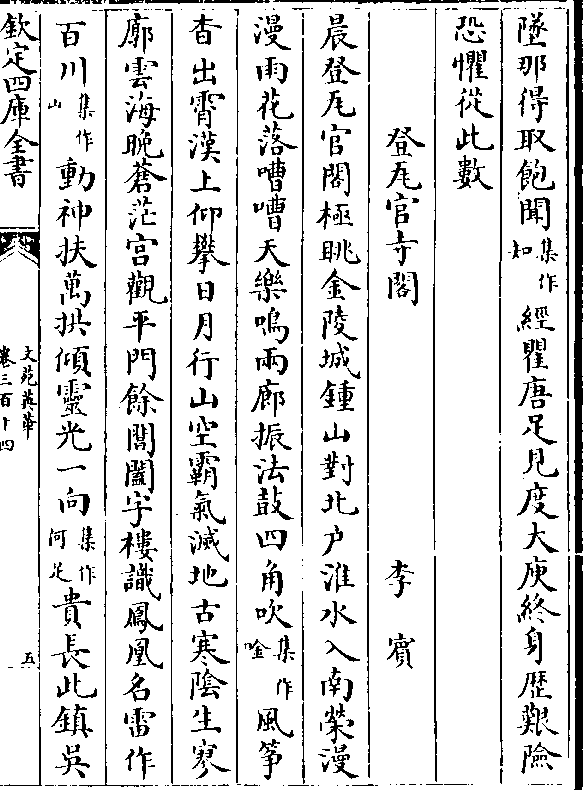 墜那得取飽聞集作如經瞿唐足見度大庾終身歴艱險
恐懼從此數
登瓦官寺閣　李賔
晨登瓦官閣極眺金陵城鍾山對北户淮水入南榮漫
漫雨花落嘈嘈天樂鳴兩廊振法鼓四角吹集作吟風筝
杳出霄漢上仰攀日月行山空霸氣滅地古寒陰生寥
廓雲海晚蒼茫宫觀平門餘閶闔字樓識鳳凰名雷作
百川集作山動神扶萬拱傾靈光一向集作何足貴長此鎮吳
欽定四庫全書
文苑英華
卷三百十四
五